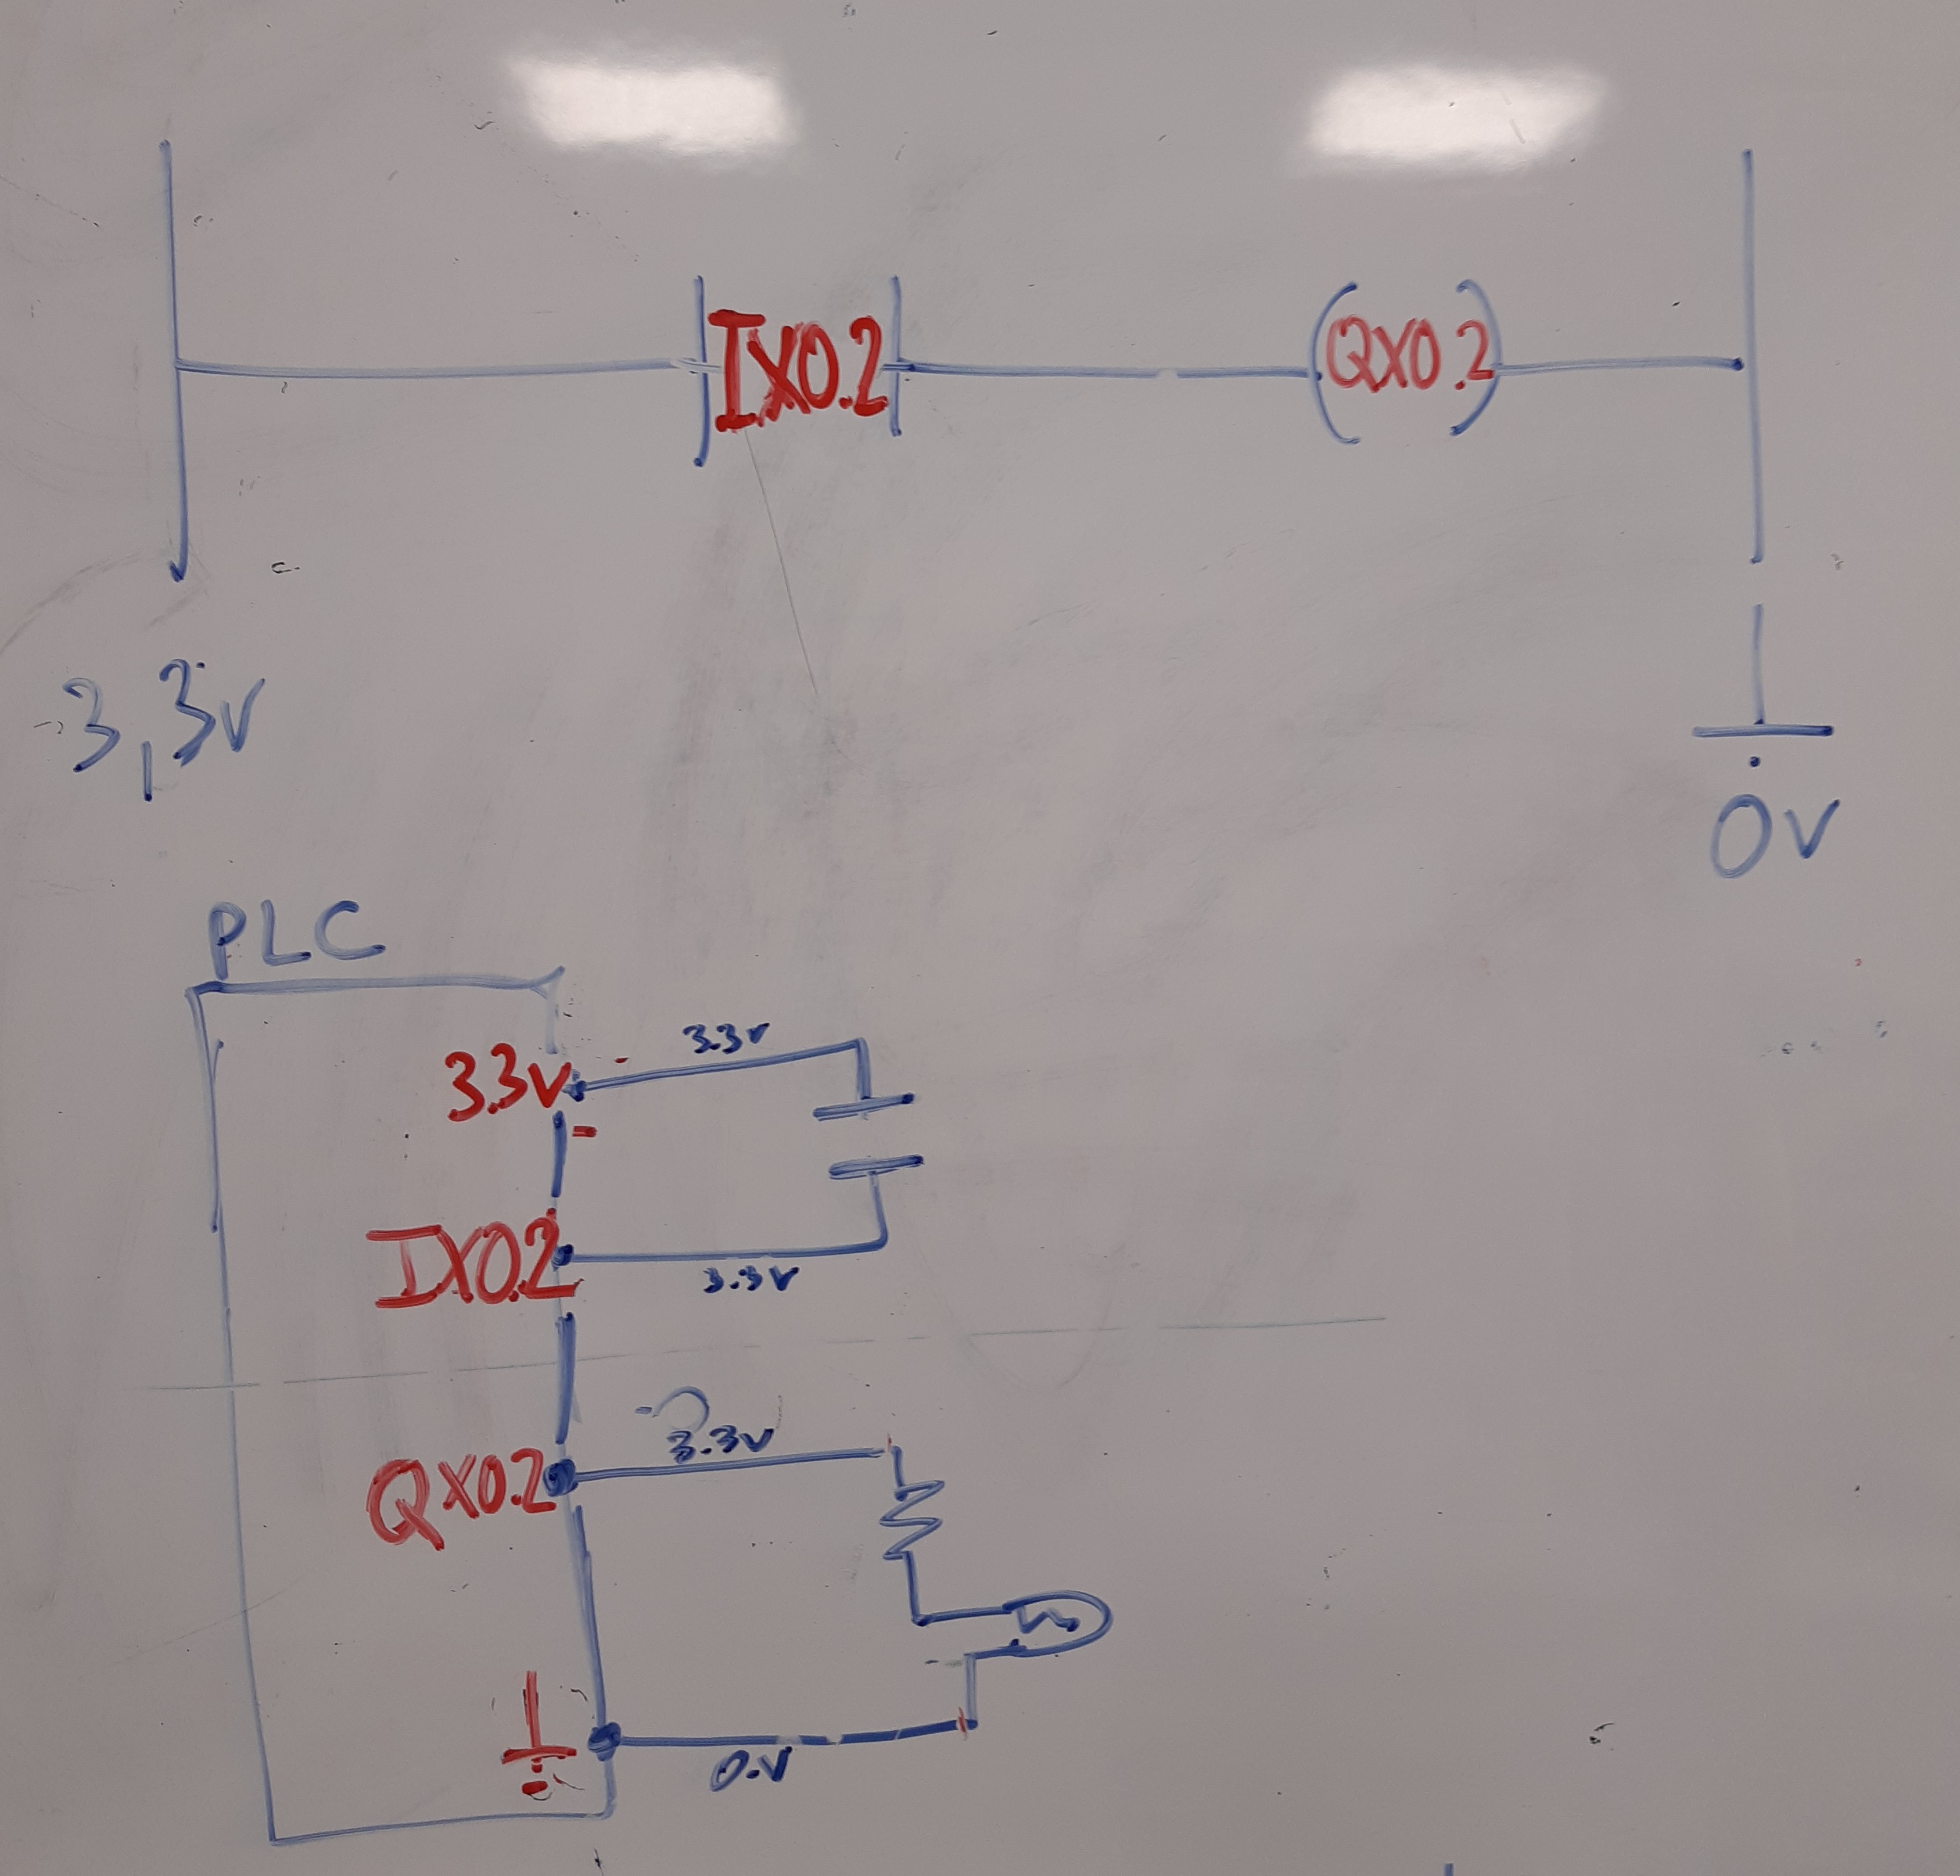 IX0.2
QX0.2
3,3V
0V
PLC
3.3V
3.3V
IX0.2
3.3V
3.3V
QX0.2
0.V